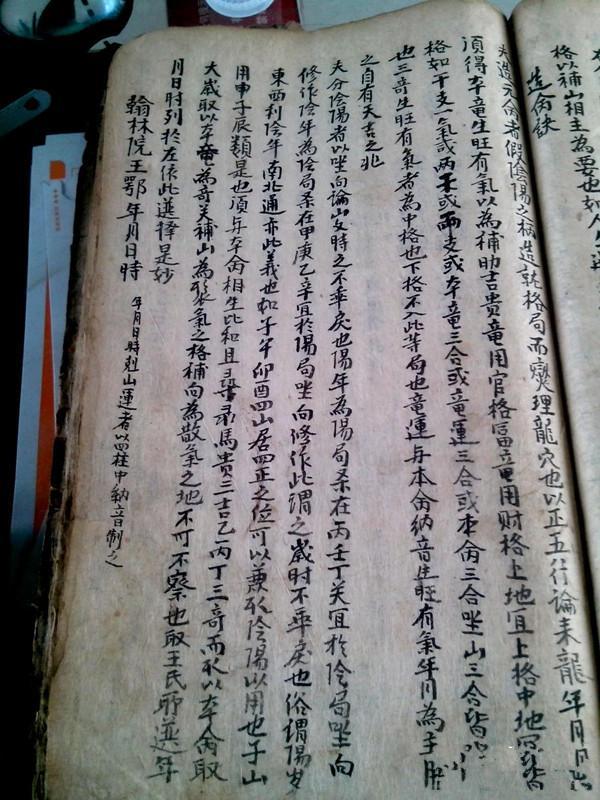 格以補山相主為要也如人生
造命訣
夫造元命者假陰陽之柄造就格局而爕理龍穴也以正五行論来龍年月日
須得本竜生旺有氣以為補助吉貴竜用官格冨竜用财格上地宜上格中地
格如干支一氣或兩干或兩支或本竜三合或竜運三合或本命三合坐山三合皆
也三竒生旺有氣者為中格也下格不入此等局也竜運与本命納音生旺有氣年月為主
之自有大吉之兆
夫分陰陽者以坐向論山文時之不乖戾也陽年為陽局杀在丙壬丁癸宜於陰局坐向
修作陰年為陰局杀在甲庚乙辛宜於陽局坐向修作此謂之歲时不乖戾也俗謂陽岁
東西利陰年南北通亦此義也如子午卯酉四山居四正之位可以兼取陰陽以用也子山
用申子辰類是也須与本命相生比和且禄馬貴三吉乙丙丁三奇而取以本命取
大歲取以本竜為竒关補山為聚氣之格補向為散氣之地不可不察也取王氏耶選年
月日时列於左依此選擇是妙
翰林院王鄂年月日時 年月日時尅山運者以四柱中納音制之